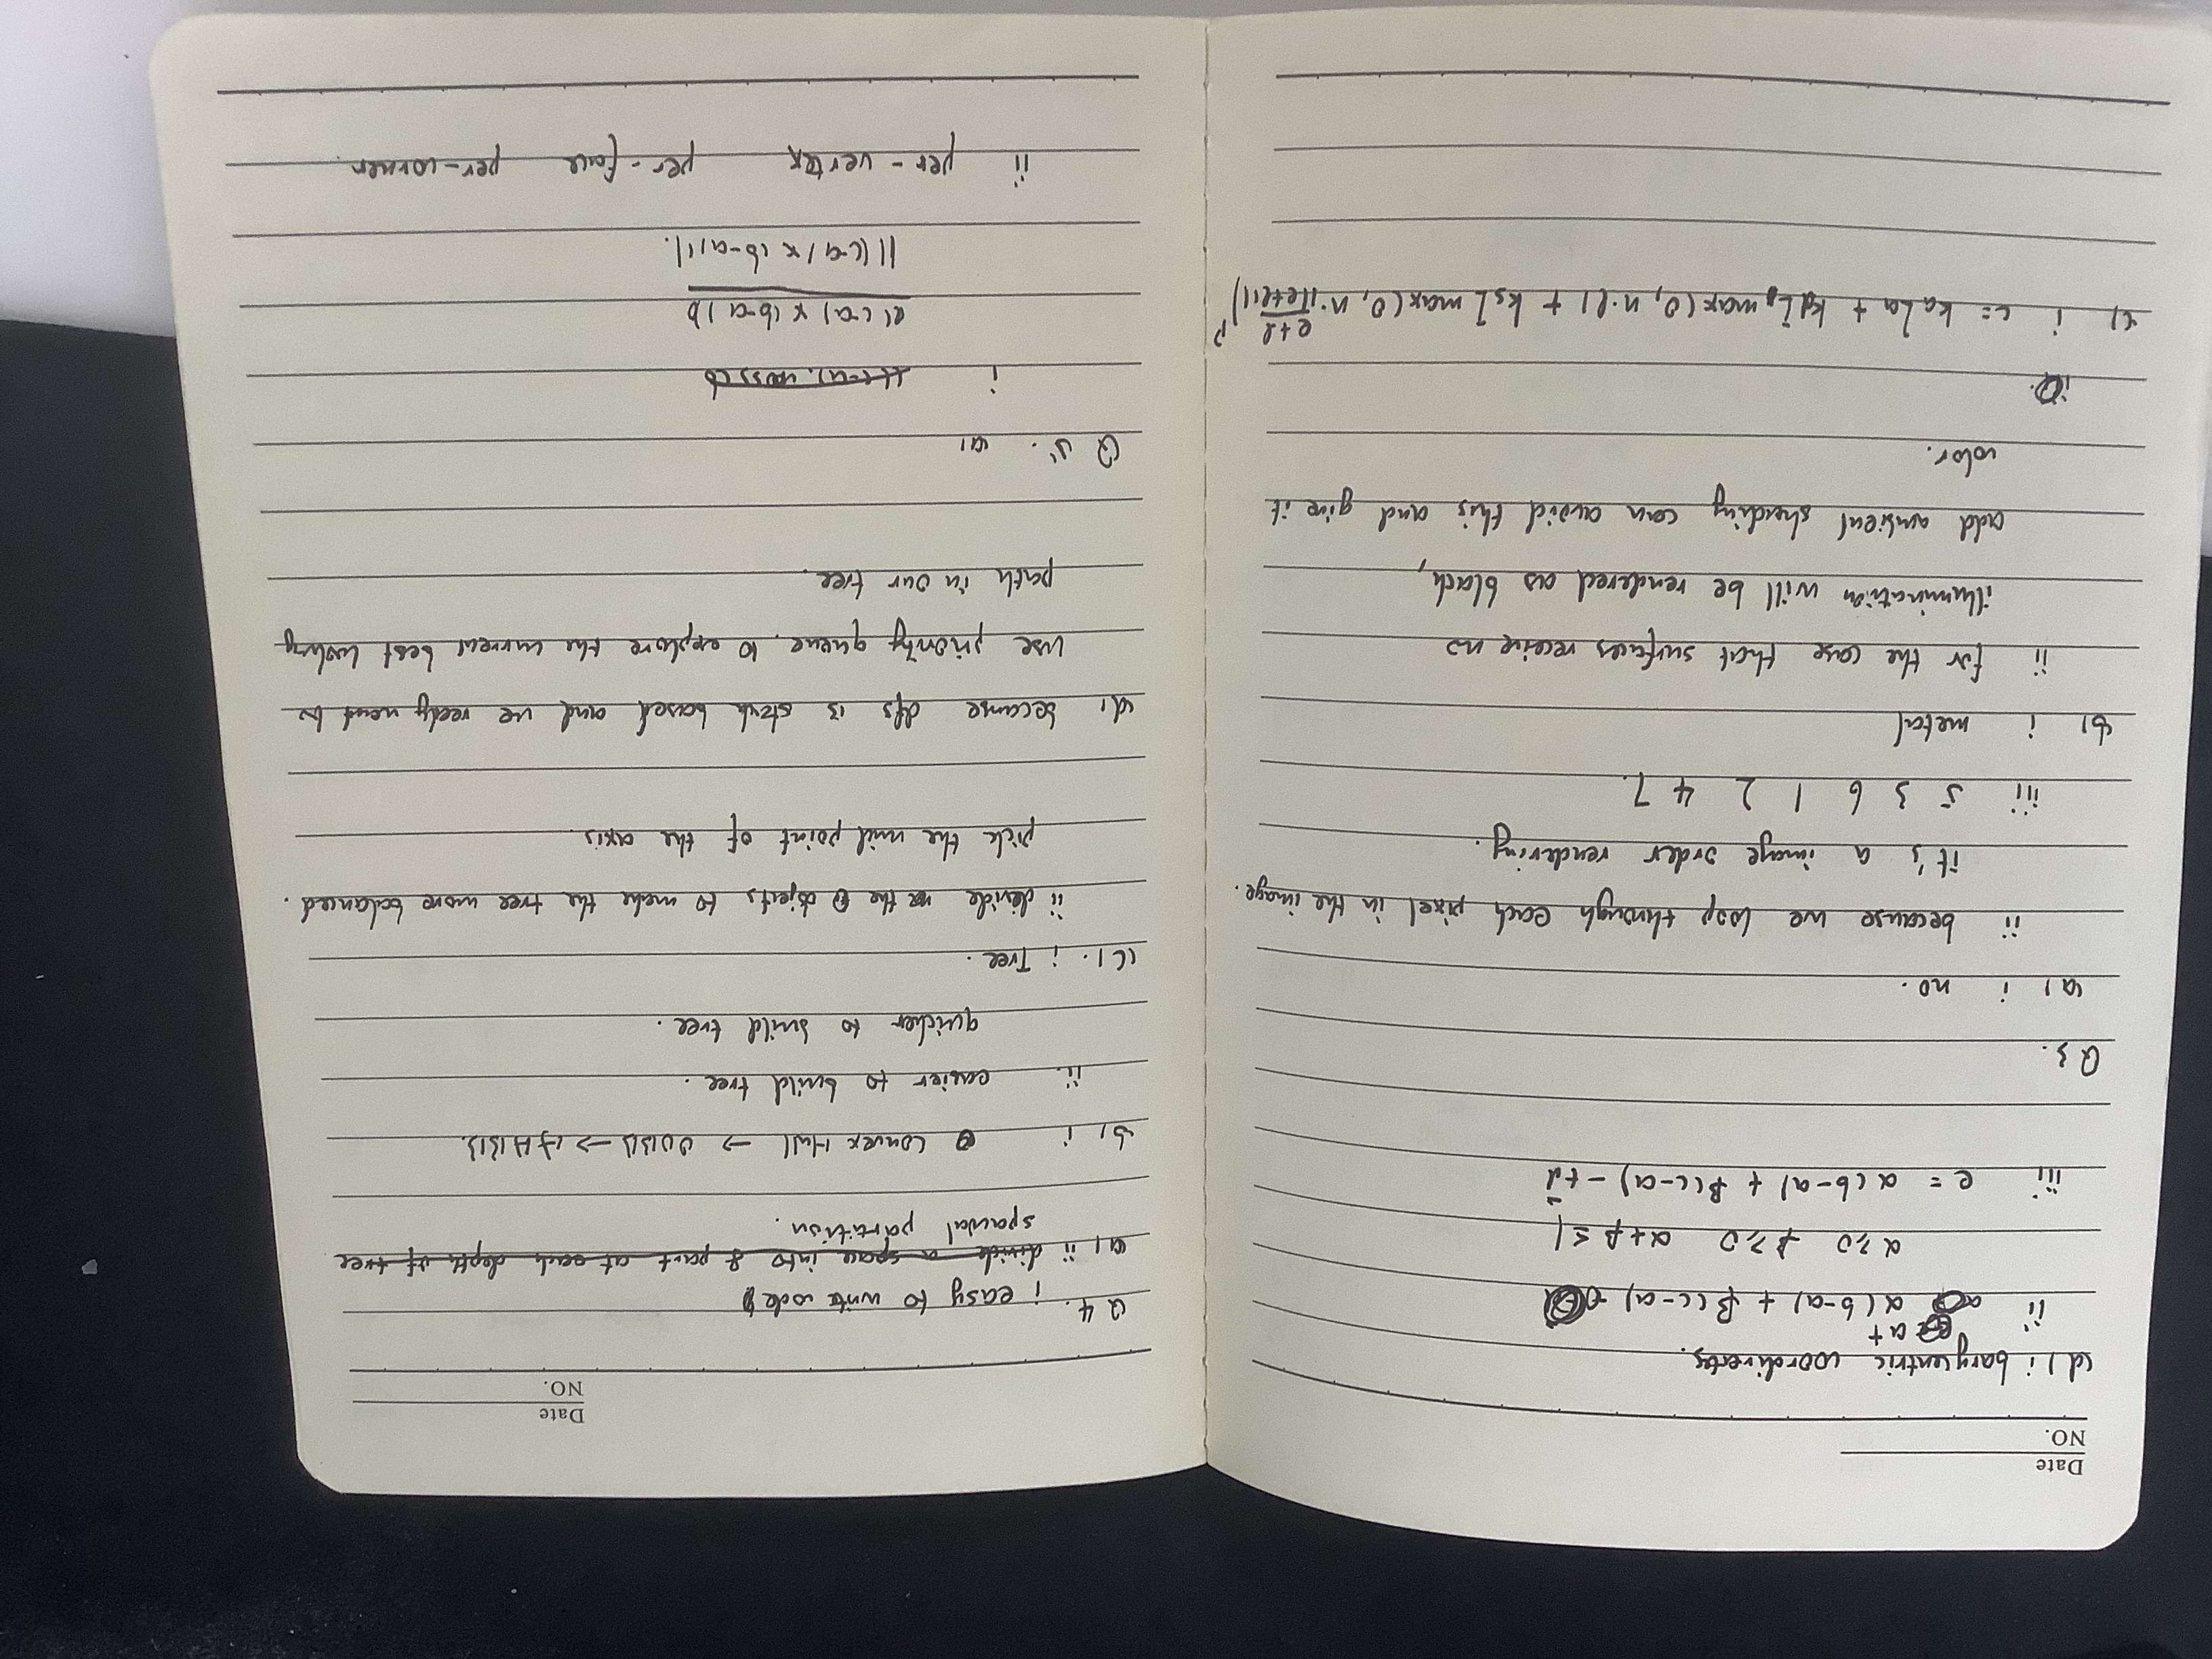 Date
NO.
(d) i barycentric coordinates.
a+
ii α(b-a) + β(c-a)
α≥0 β≥0 α+β≤1
iii e = α(b-a) + β(c-a) - td⃗
Q3.
(a) i no.
ii because we loop through each pixel in the image.
it's a image order rendering.
iii 5 3 6 1 2 4 7.
(b) i metal
ii for the case that surfaces receive no
illumination will be rendered as black,
add ambient shading can avoid this and give it
color.
c) i c= kaIa + kdI max(0, n·l) + ksI max(0, n·(e+l)/||e+l||)^p
Date
NO.
Q4. i easy to write code
a) ii divide a space into 8 part at each depth of tree
spacial partition.
b) i Convex Hull → OOBB → AABB.
ii. easier to build tree.
quicker to build tree.
(C). i Tree.
ii devide the objects to make the tree more balanced.
pick the mid point of the axis.
d) because dfs is stack based and we really need to
use priority queue. to explore the current best looking
path in our tree.
Q5. a)
i
(c-a) x (b-a)
||(c-a) x (b-a)||.
ii per-vertex per-face per-corner.